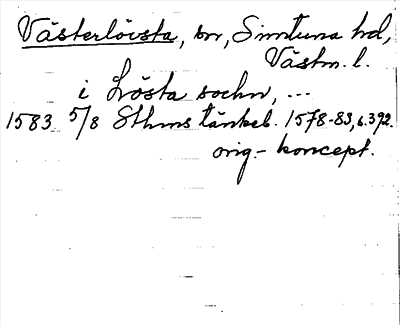 Västerlövsta, sn, Simtuna hd,
Västm. l.
i Lösta sochn, ...
1583 5/8 Sthms tänkeb. 1578-83, s. 392.
orig.- koncept.